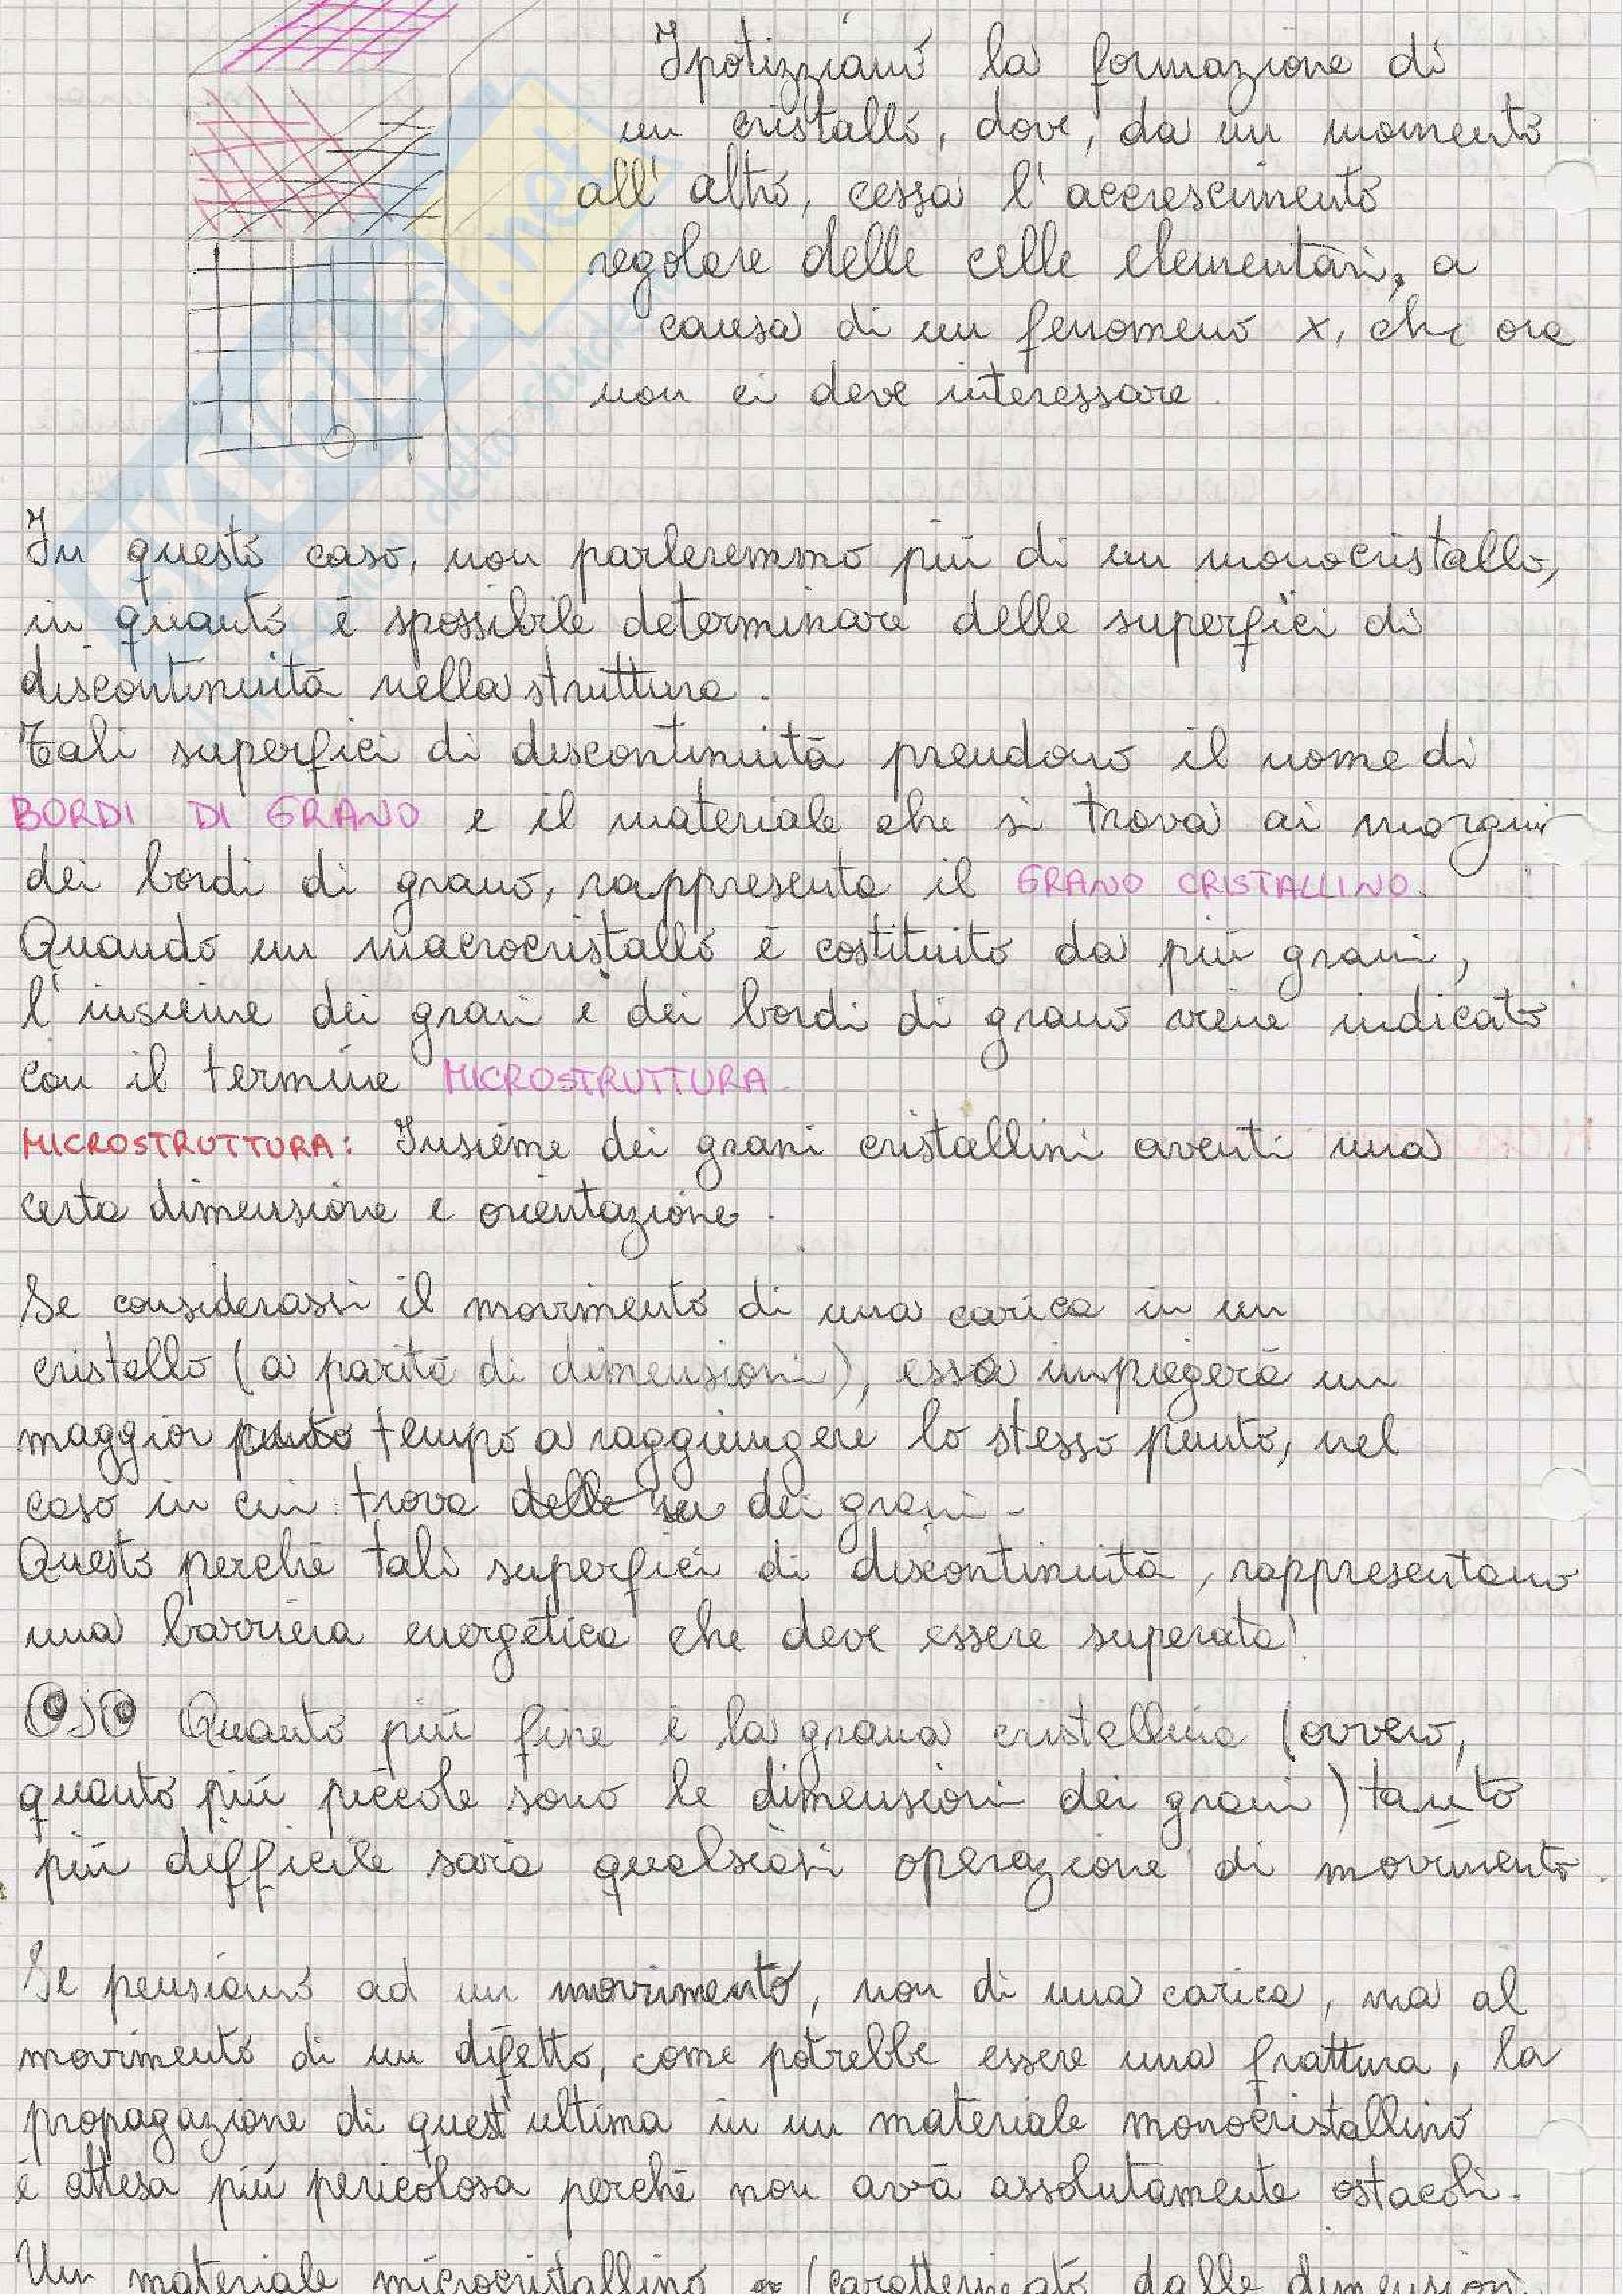 Ipotizziamo la formazione di
un cristallo, dove, da un momento
all'altro, cessa l'accrescimento
regolare delle celle elementari, a
causa di un fenomeno x, che ora
non ci deve interessare.
In questo caso, non parleremmo più di un monocristallo,
in quanto è spossibile determinare delle superfici di
discontinuità nella struttura.
Tali superfici di discontinuità prendono il nome di
BORDI DI GRANO e il materiale che si trova ai margini
dei bordi di grano, rappresenta il GRANO CRISTALLINO.
Quando un macrocristallo è costituito da più grani,
l'insieme dei grani e dei bordi di grano viene indicato
con il termine MICROSTRUTTURA.
MICROSTRUTTURA: Insieme dei grani cristallini aventi una
certa dimensione e orientazione.
Se considerassi il movimento di una carica in un
cristallo (a parità di dimensioni), essa impiegerà un
maggior punto tempo a raggiungere lo stesso punto, nel
caso in cui trova delle su dei grani.
Questo perché tali superfici di discontinuità, rappresentano
una barriera energetica che deve essere superata!
Quanto più fine è la grana cristallina (ovvero,
quanto più piccole sono le dimensioni dei grani) tanto
più difficile sarà qualsiasi operazione di movimento.
Se pensiamo ad un movimento, non di una carica, ma al
movimento di un difetto, come potrebbe essere una frattura, la
propagazione di quest'ultima in un materiale monocristallino
è attesa più pericolosa perché non avrà assolutamente ostacoli.
Un materiale microcristallino (caratterizzato dalle dimensioni